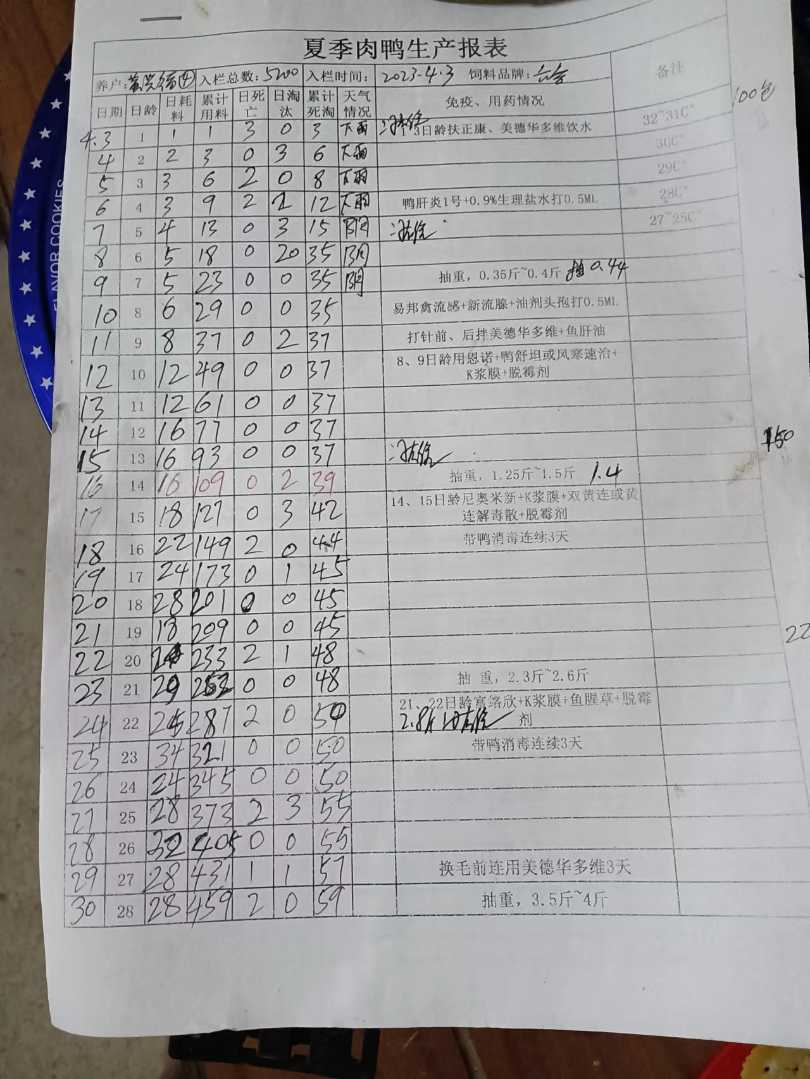 夏季肉鸭生产报表
养户: 入栏总数:5200 入栏时间:2023-4.3 饲料品牌:六合 备注
日期 日龄 日耗料 累计用料 日死亡 日淘汰 累计死淘 天气情况 免疫、用药情况
100包
4.3 1 1 1 3 0 3 下雨 3日龄扶正康、美德华多维饮水 32~31C°
4 2 2 3 0 3 6 下雨 30C°
5 3 3 6 2 0 8 下雨 29C°
6 4 3 9 2 2 12 下雨 鸭肝炎1号+0.9%生理盐水打0.5ML 28C°
7 5 4 13 0 3 15 阴 27~25C°
8 6 5 18 0 20 35 阴
9 7 5 23 0 0 35 阴 抽重,0.35斤~0.4斤 抽0.44
10 8 6 29 0 0 35 易邦禽流感+新流腺+油剂头孢打0.5ML
11 9 8 37 0 2 37 打针前、后拌美德华多维+鱼肝油
12 10 12 49 0 0 37 8、9日龄用恩诺+鸭舒坦或风寒速治+
K浆膜+脱霉剂
13 11 12 61 0 0 37
14 12 16 77 0 0 37
15 13 16 93 0 0 37
150
16 14 16 109 0 2 39 抽重,1.25斤~1.5斤 1.4
17 15 18 127 0 3 42 14、15日龄尼奥米新+K浆膜+双黄连或黄
连解毒散+脱霉剂
18 16 22 149 2 0 44 带鸭消毒连续3天
19 17 24 173 0 1 45
20 18 28 201 0 0 45
21 19 18 209 0 0 45
22
22 20 24 233 2 1 48
23 21 29 262 0 0 48 抽 重,2.3斤~2.6斤
24 22 25 287 2 0 50 21、22日龄富络欣+K浆膜+鱼腥草+脱霉
2.8斤 剂
25 23 34 321 0 0 50 带鸭消毒连续3天
26 24 24 345 0 0 50
27 25 28 373 2 3 55
28 26 32 405 0 0 55
29 27 28 431 1 1 57 换毛前连用美德华多维3天
30 28 28 459 2 0 59 抽重,3.5斤~4斤
FLAVOR COOKIES